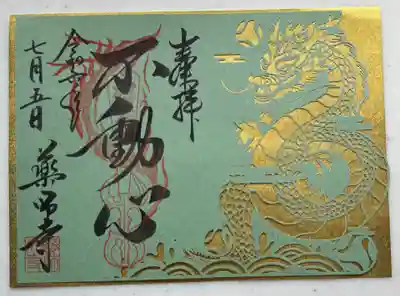 奉拝
不動心
令和六年
七月五日